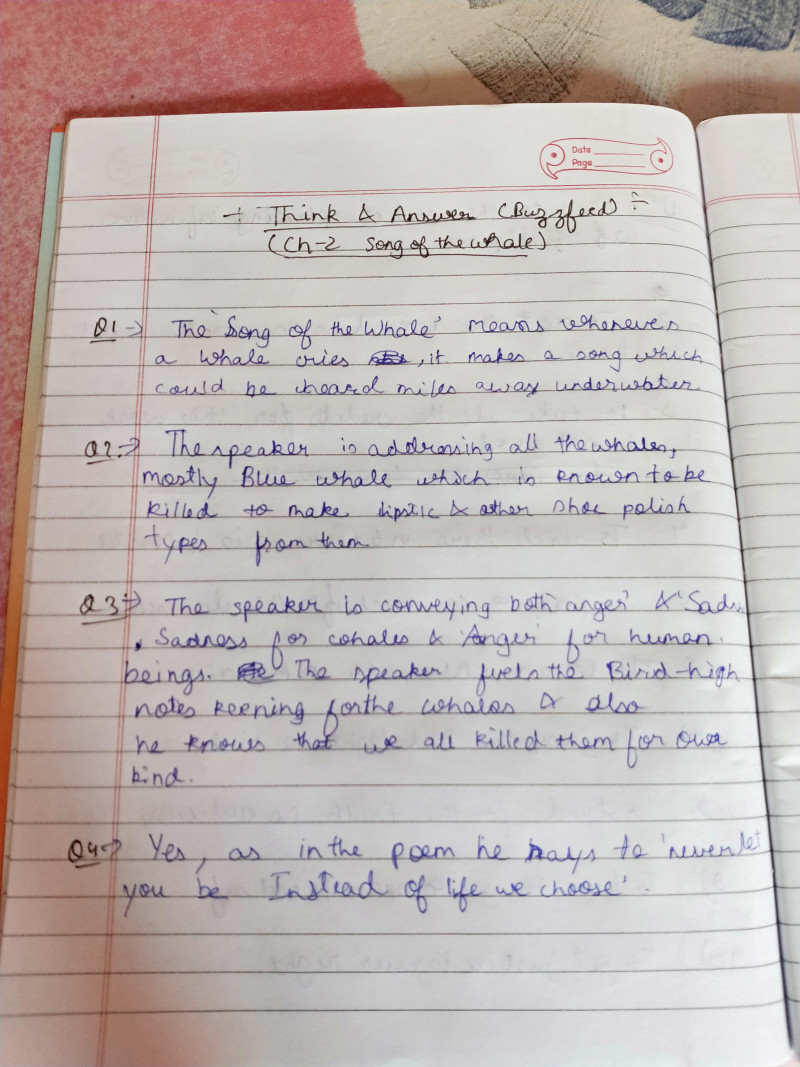 Date
Page
÷ Think & Answer (Buzzfeed) ÷
(Ch-2 Song of the whale)
Q1→ The 'Song of the Whale' means whenever
a whale cries, it makes a song which
could be heard miles away underwater
Q2.→ The speaker is addressing all the whales,
mostly Blue whale which is known to be
killed to make lipstic & other shoe polish
types from them.
Q3→ The speaker is conveying both 'anger' & 'Sad
Sadness for whales & 'Anger' for human
beings. The speaker fuels the Bird-high
notes keening for the whales & also
he knows that we all killed them for our
kind.
Q4→ Yes, as in the poem he says to 'never let
you be Instead of life we choose'.